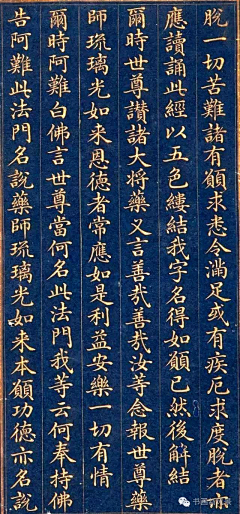 脫一切苦難諸有願求悉令滿足或有疾厄求度脫者亦
應讀誦此經以五色縷結我字名得如願已然後解結
爾時世尊讚諸大將藥叉言善哉善哉汝等念報世尊藥
師琉璃光如来恩德者常應如是利益安樂一切有情
爾時阿難白佛言世尊當何名此法門我等云何奉持佛
告阿難此法門名說藥師琉璃光如来本願功德亦名說